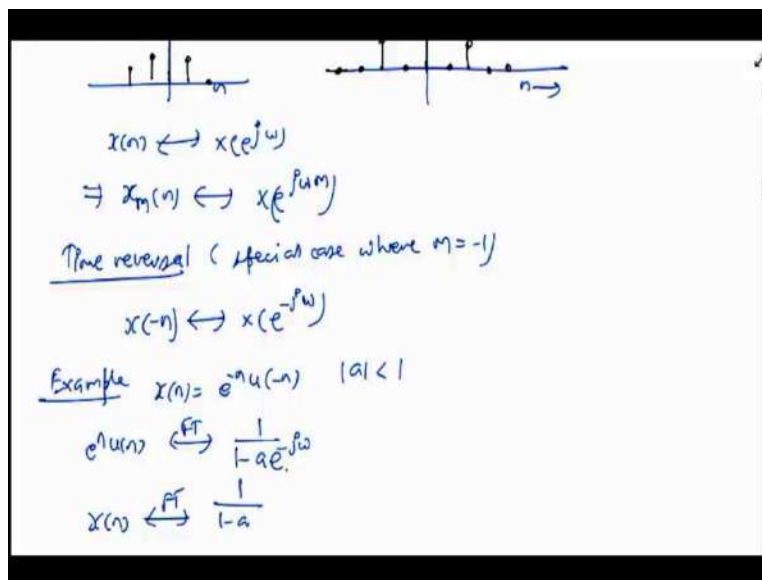 n
n→
x(n) ↔ x(e^jω)
⇒ x_m(n) ↔ x(e^jωm)
Time reversal ( special case where m = -1)
x(-n) ↔ x(e^-jω)
Example x(n) = e^-n u(-n) |a| < 1
e^n u(n) ⟺FT 1/(1-ae^-jω)
x(n) ⟺FT 1/(1-a